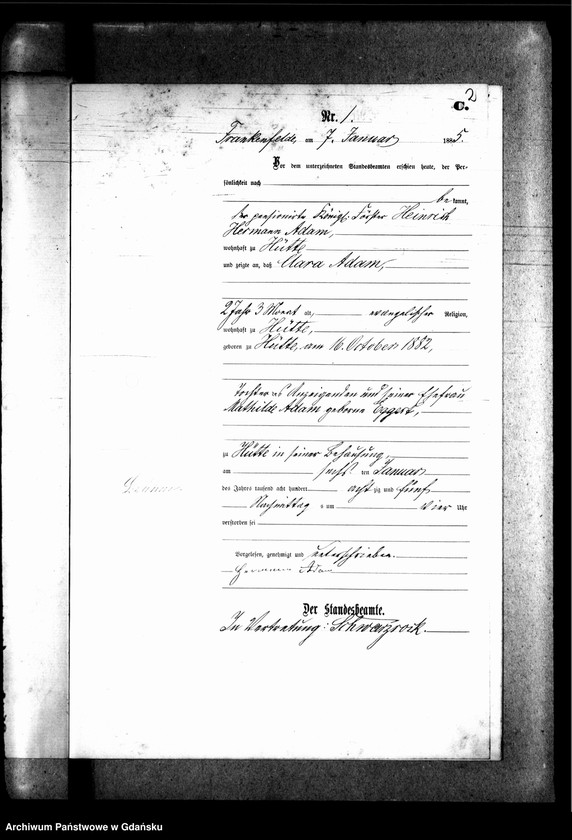 2
C.
Nr. 1.
Frankenfelde, am 7. Januar 1885.
Vor dem unterzeichneten Standesbeamten erschien heute, der Per-
sönlichkeit nach
be kannt,
der pensionirte Königl. Förster Heinrich
Hermann Adam,
wohnhaft zu Hütte
und zeigte an, daß Clara Adam,
2 Jahr 3 Monat alt, evangelischer Religion,
wohnhaft zu Hütte,
geboren zu Hütte, am 16. October 1882,
Tochter des Anzeigenden und seiner Ehefrau
Mathilde Adam geborne Eggert,
zu Hütte in seiner Behausung,
am sechsten Januar
des Jahres tausend acht hundert acht zig und fünf
Nachmittag s um vier Uhr
verstorben sei
Vorgelesen, genehmigt und unterschrieben.
Hermann Adam
Der Standesbeamte.
In Vertretung: Schwarzrock.
Archiwum Państwowe w Gdańsku